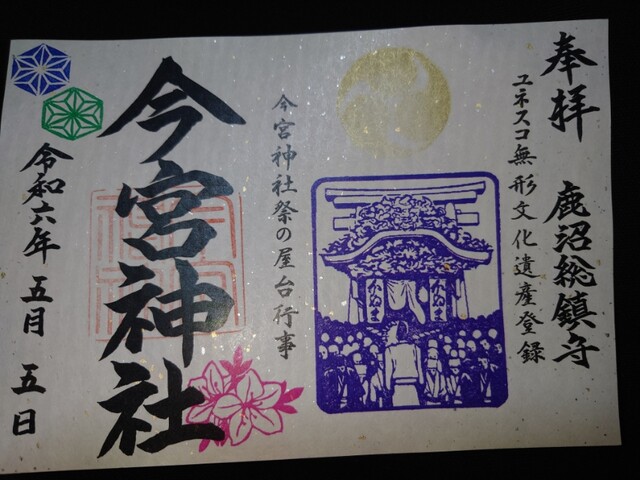 奉拝
鹿沼総鎮守
ユネスコ無形文化遺産登録
今宮神社祭の屋台行事
今宮神社
令和六年 五月 五日